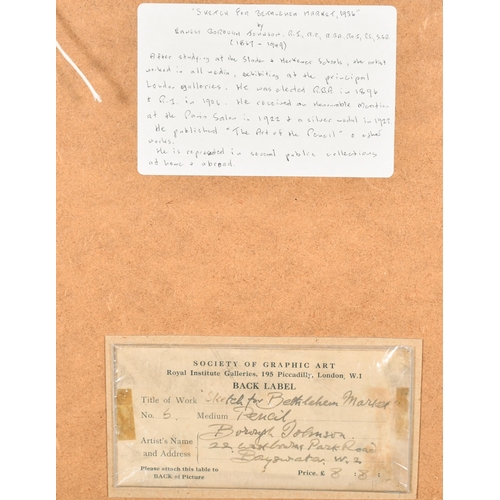 "SKETCH FOR BETHLEHEM MARKET, 1936"
by
ERNEST BOROUGH JOHNSON, R.I., R.O.I.,
(1867 - 1949)
After studying at the Slade & Herkomer Schools, the artist
worked in all media, exhibiting at the principal
London galleries. He was elected R.B.A. in 1896
& R.I. in 1906. He received an Honourable Mention
at the Paris Salon in 1922 & a silver medal in
He published "The Art of the Pencil" & other
works.
He is represented in several public collections
at home & abroad.
SOCIETY OF GRAPHIC ART
Royal Institute Galleries, 195 Piccadilly, London, W.1
BACK LABEL
Title of Work "Sketch for Bethlehem Market
No. 5. Medium Pencil
Artist's Name Borough Johnson
and Address 22 Westbourne Park Road
Bayswater. W.2
Please attach this table to
BACK of Picture
Price, £ 8 . 8 .